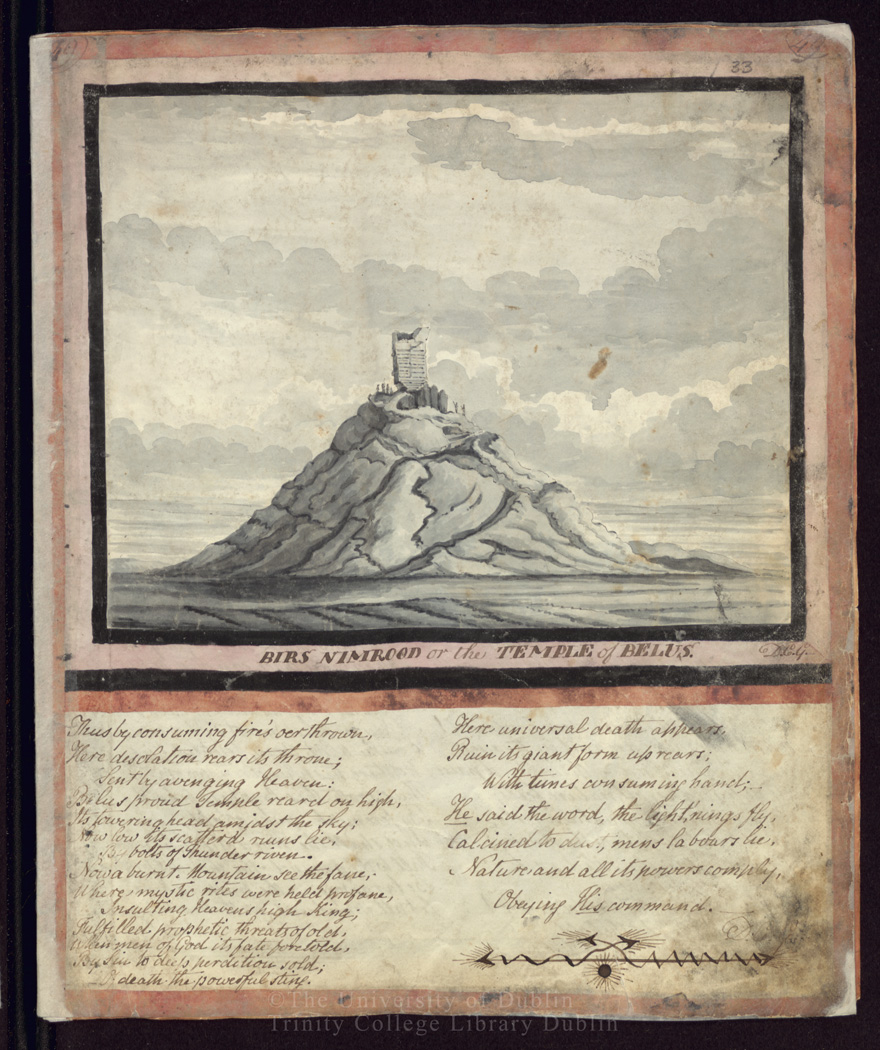 33
BIRS NIMROOD or the TEMPLE of BELUS.
Thus by consuming fire's oerthrown,
Here desolation rears its throne;
Sent by avenging Heaven:
Belus proud Temple reard on high,
Its towering head amidst the sky;
Now low its scatterd ruins lie,
By bolts of thunder riven.
Now a burnt Mountain see the fane,
Where mystic rites were held profane,
Insulting Heavens high King;
Fulfilled prophetic threats of old,
When men of God its fate foretold,
By sin to deep perdition sold;
death the powerful sting.
Here universal death appears,
Ruin its giant form up rears;
With times consuming hand;
He said the word, the lightnings fly,
Calcined to dust, mens labours lie,
Nature and all its powers comply,
Obeying His command.
©The University of Dublin
Trinity College Library Dublin